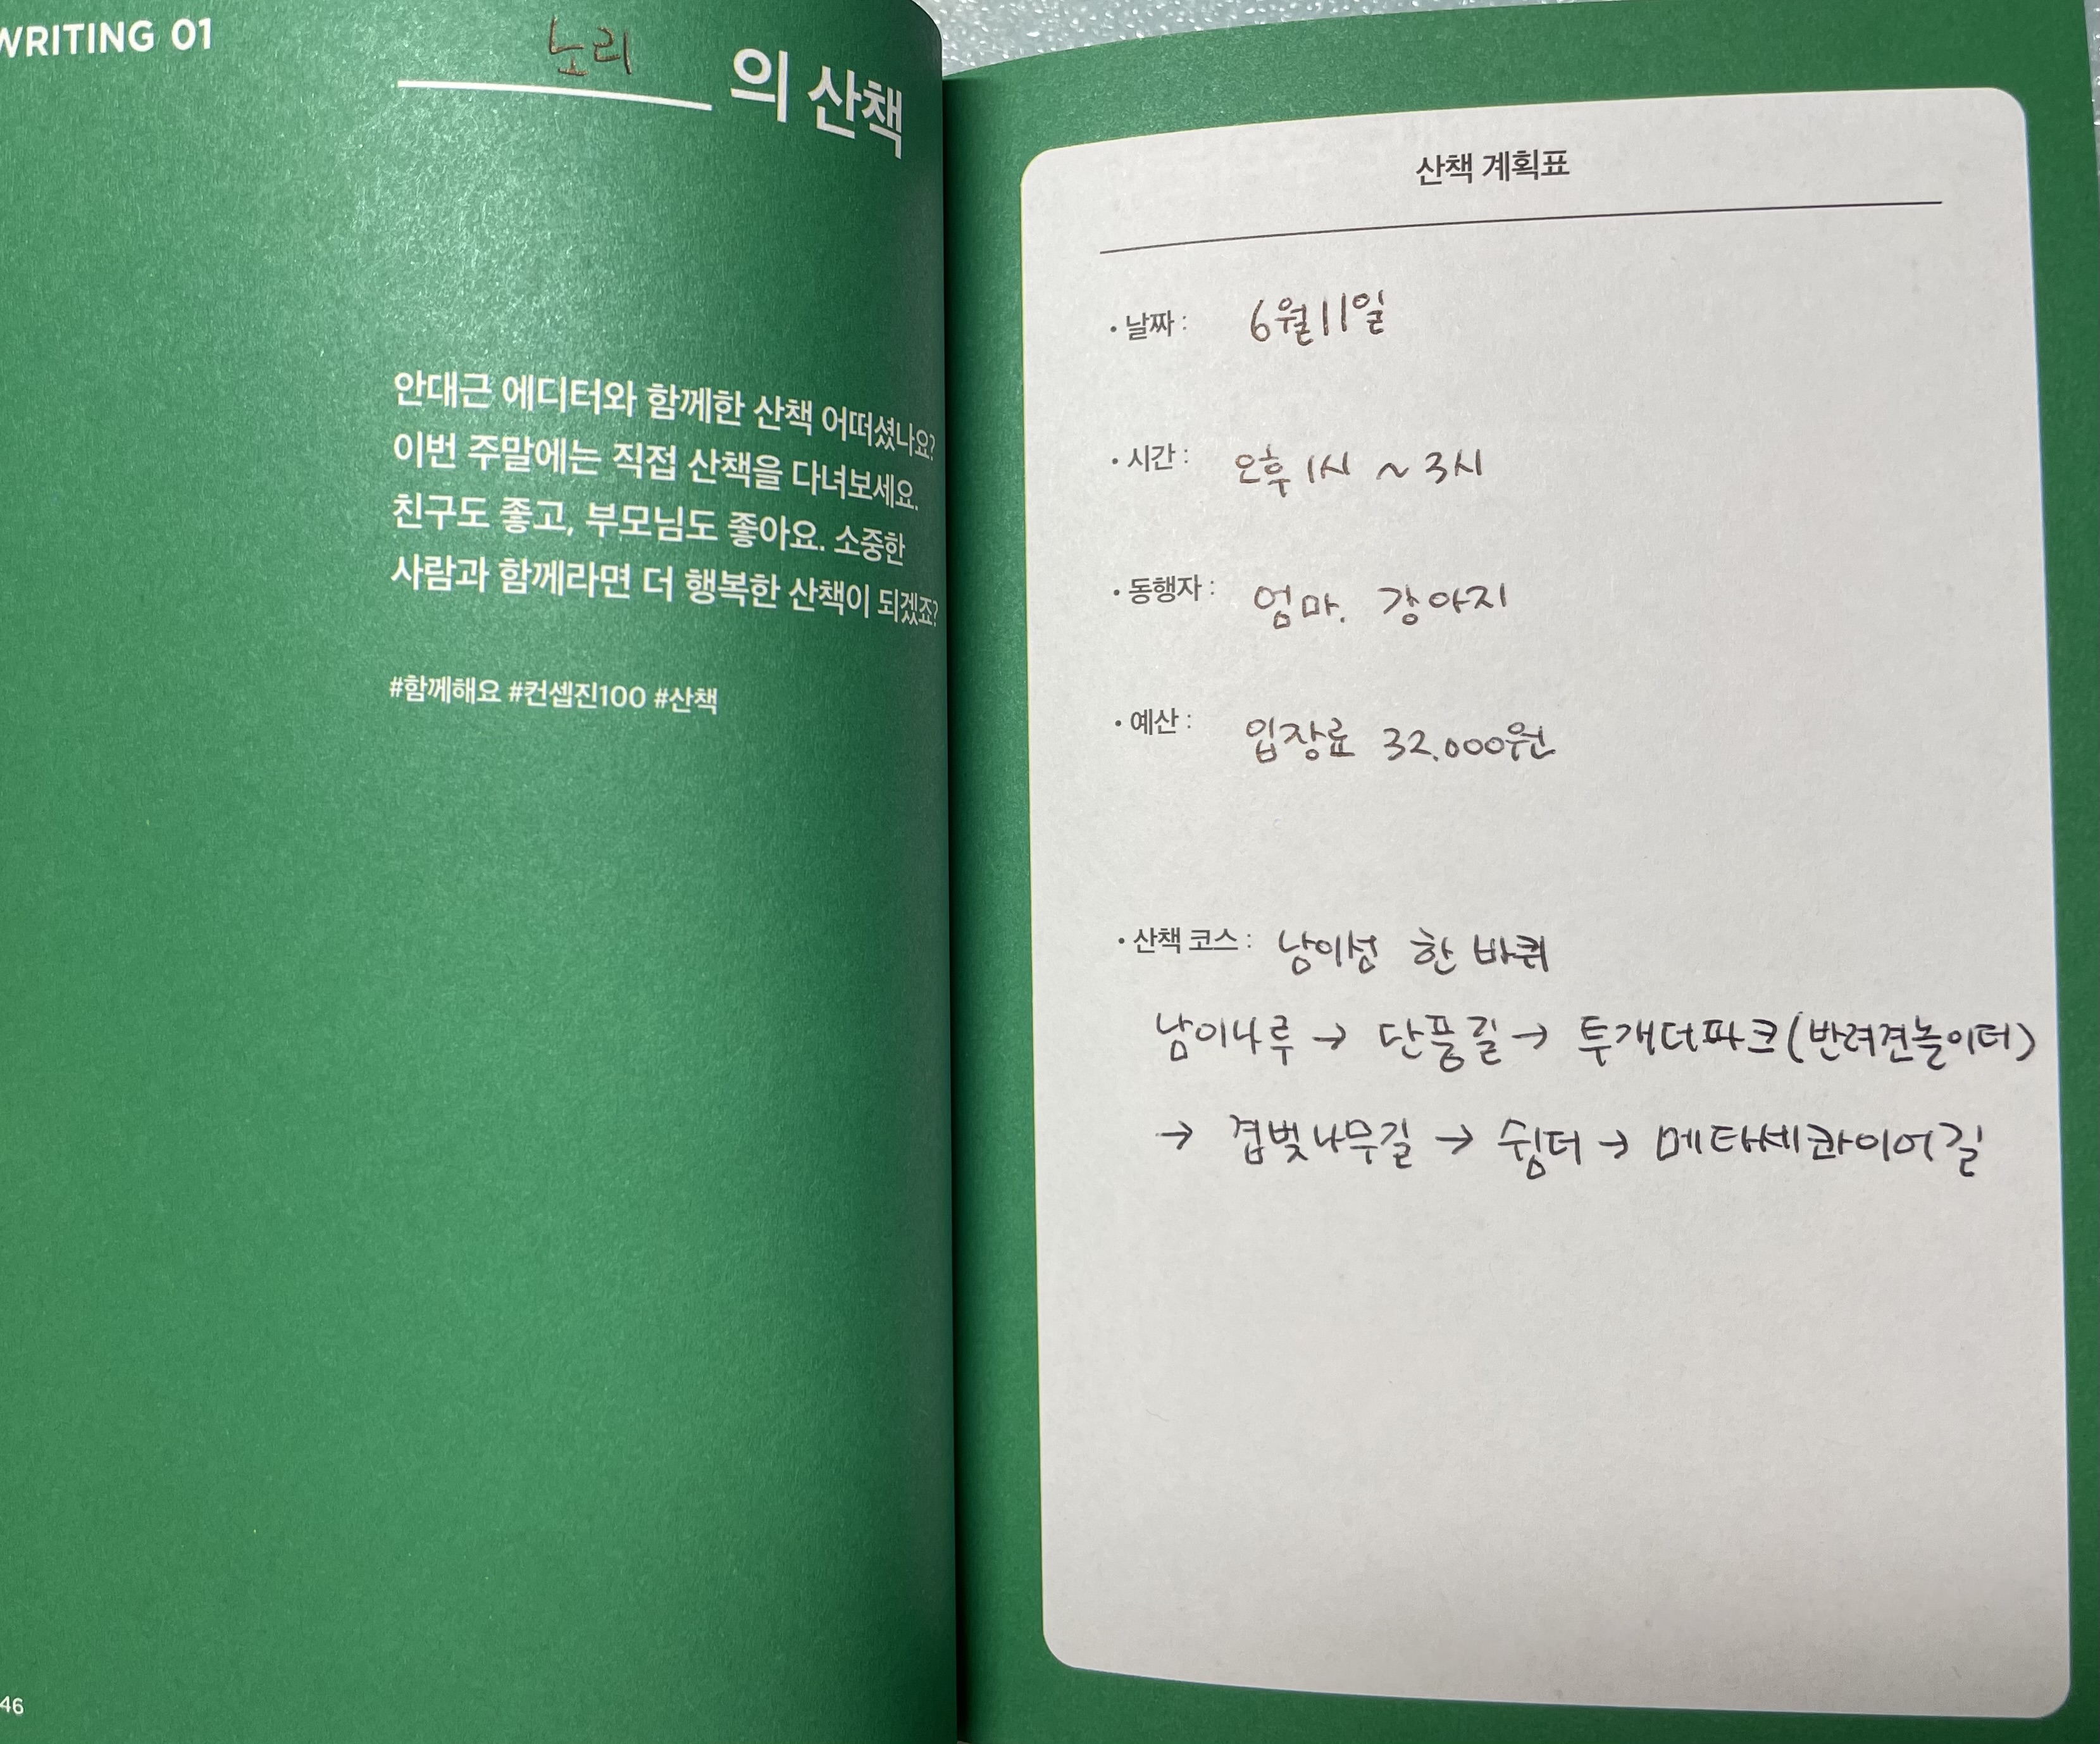 WRITING 01
노리 의 산책
안대근 에디터와 함께한 산책 어떠셨나요?
이번 주말에는 직접 산책을 다녀보세요.
친구도 좋고, 부모님도 좋아요. 소중한
사람과 함께라면 더 행복한 산책이 되겠죠?
#함께해요 #컨셉진100 #산책
46
산책 계획표
• 날짜 : 6월 11일
• 시간 : 오후 1시 ~ 3시
• 동행자 : 엄마. 강아지
• 예산 : 입장료 32.000원
• 산책 코스 : 남이섬 한 바퀴
남이나루 → 단풍길 → 투개더파크(반려견놀이터)
→ 겹벚나무길 → 쉼터 → 메타세콰이어길